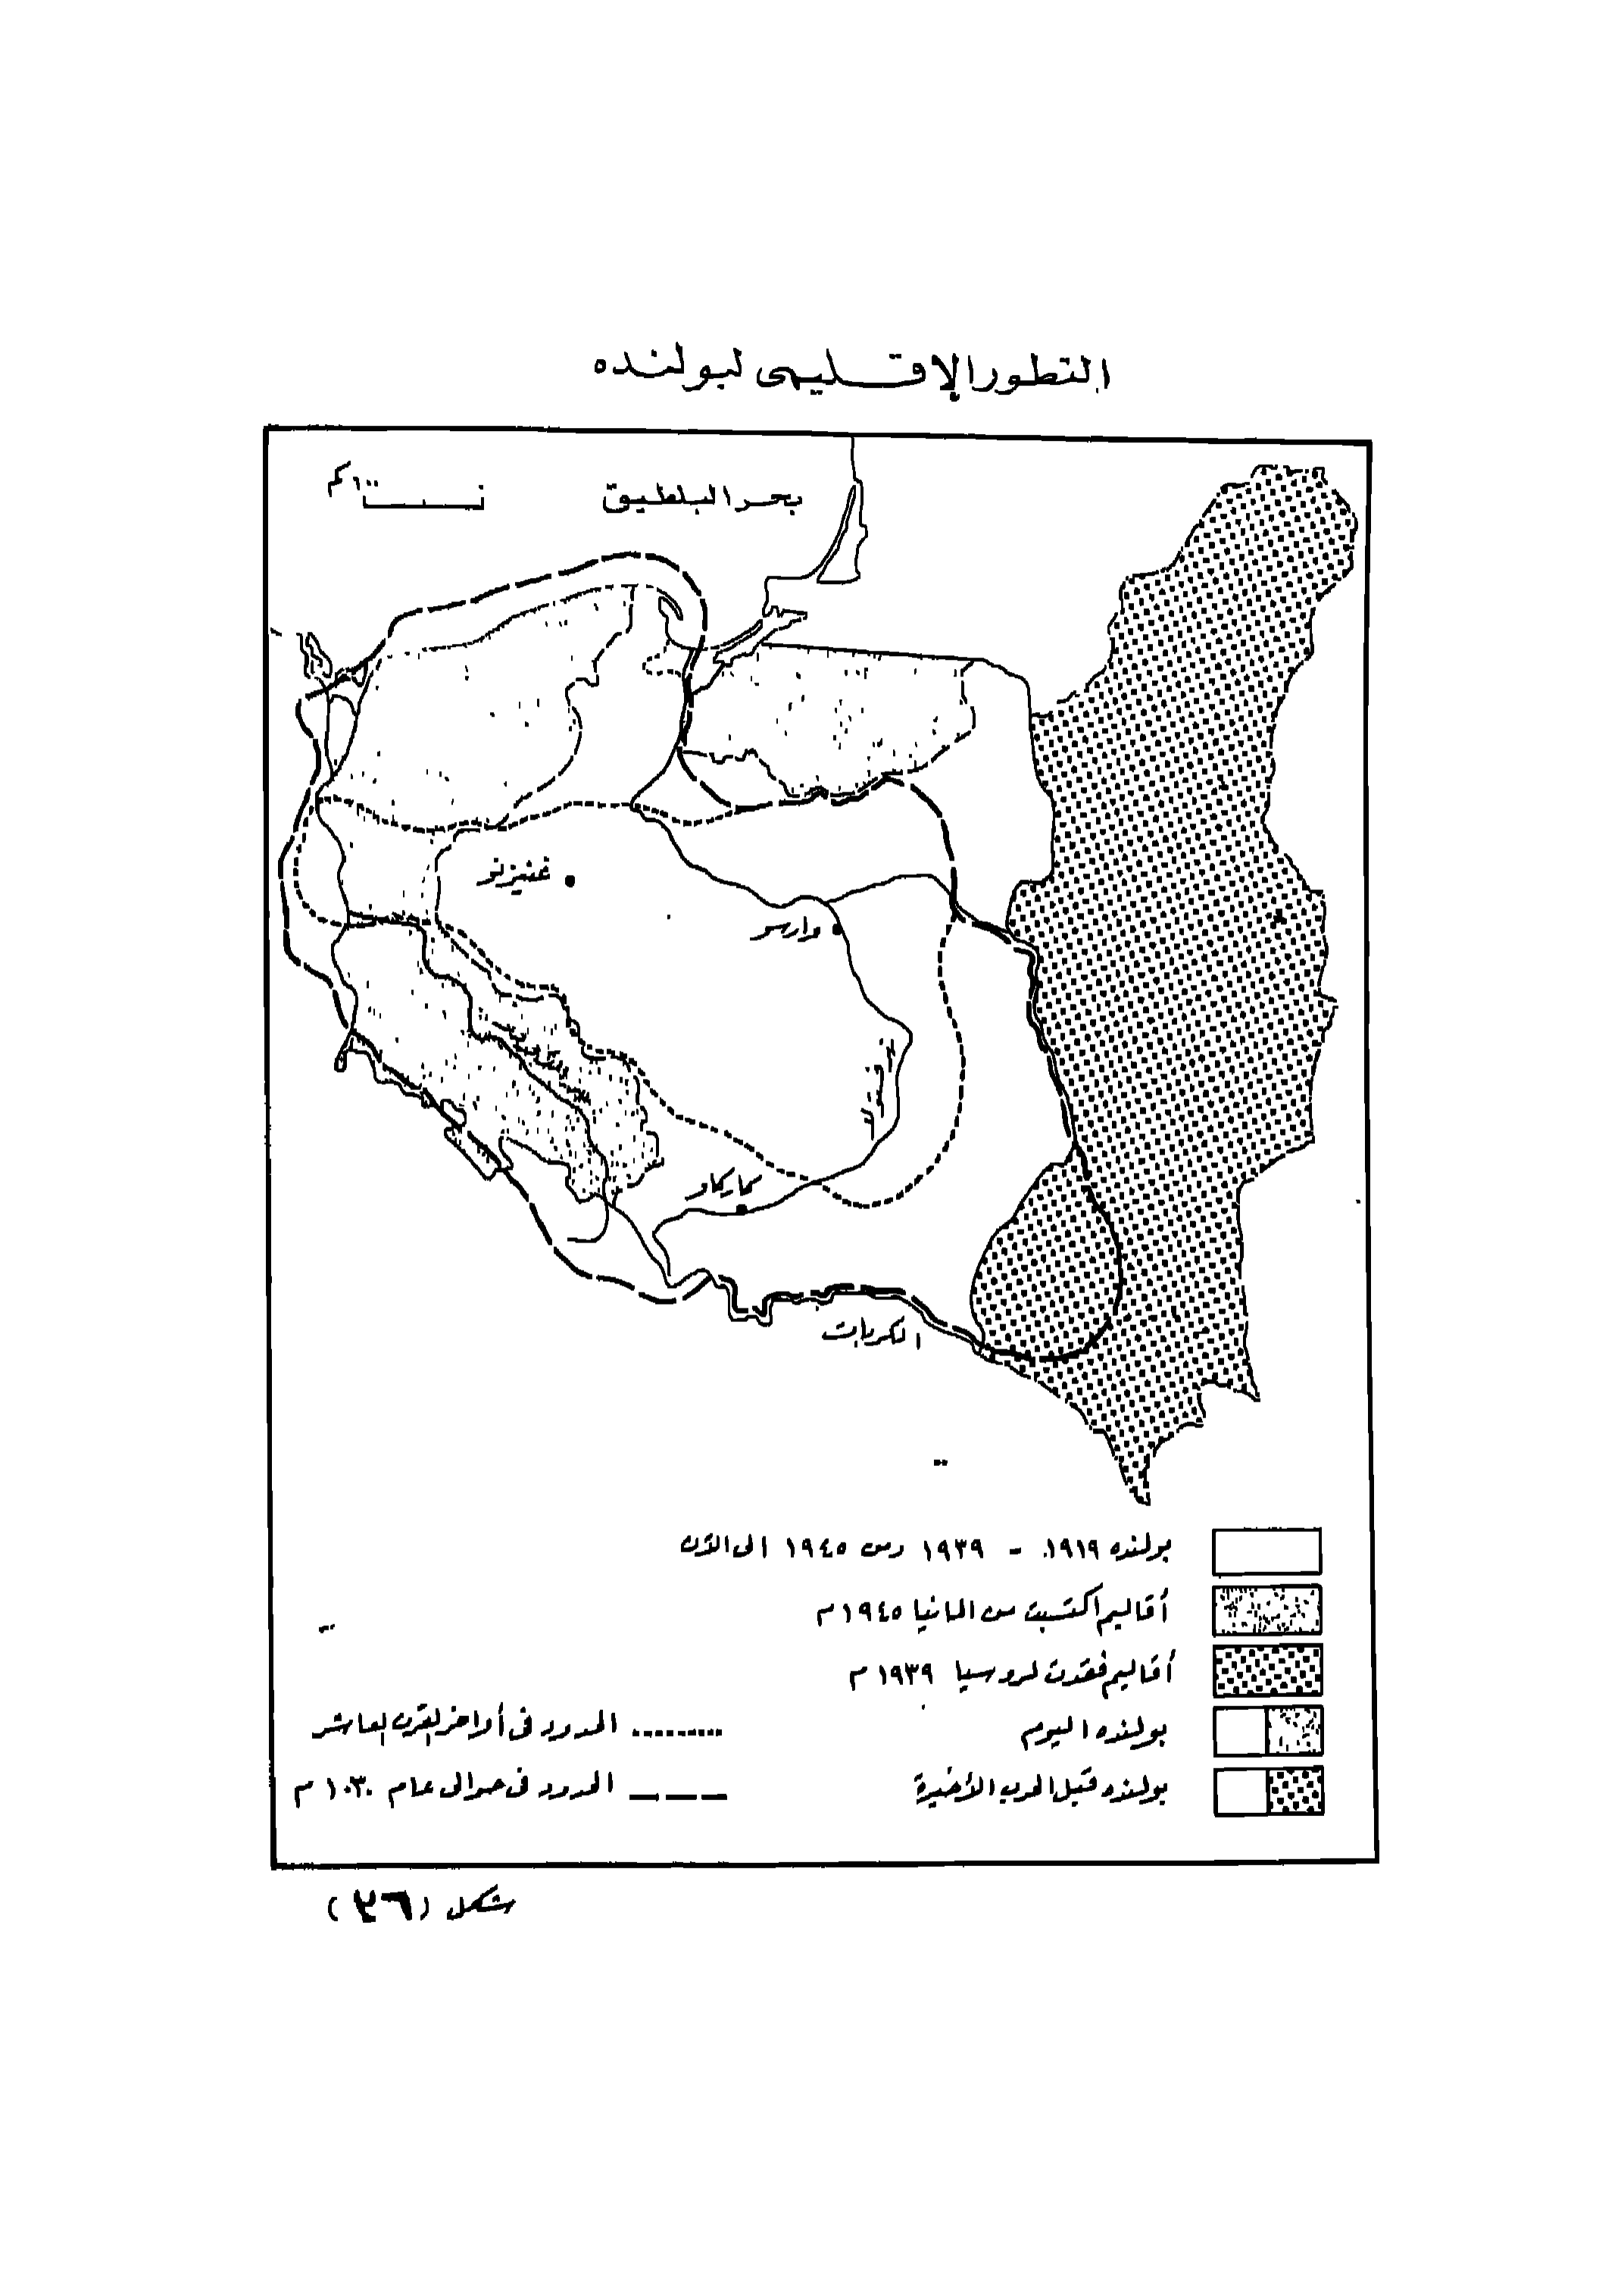 التطور الإقليمى لبولنده
بحر البلطيق
١٠٠ كم
غنيزنو
وارسو
كاركاو
الكربات
بولنده ١٩١٩ - ١٩٣٩ ومن ١٩٤٥ الى الآن
أقاليم اكتسبت من المانيا ١٩٤٥ م
أقاليم فقدت لروسيا ١٩٣٩ م
بولنده اليوم
الحدود فى أواخر القرن العاشر
بولنده قبل الحرب الأخيرة
الحدود فى حوالى عام ١٠٣٠ م
شكل (٣٦)